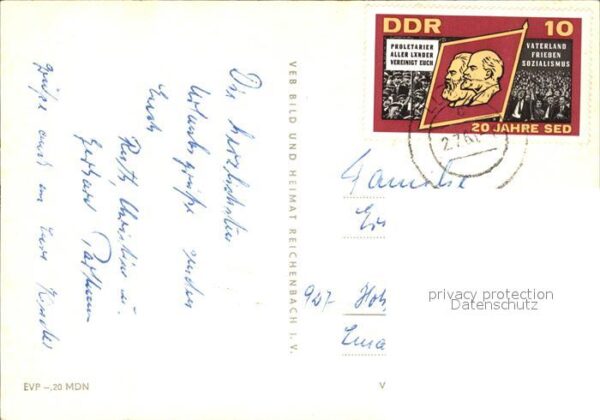 DDR 10
PROLETARIER
ALLER LÄNDER
VEREINIGT EUCH
VATERLAND
FRIEDEN
SOZIALISMUS
20 JAHRE SED
Die herzlichsten
Urlaubsgrüße senden
Euch
Ruth, Christine u.
Gerhard
Grüße auch an Eure Kinder
VEB BILD UND HEIMAT REICHENBACH I. V.
Familie
927
privacy protection
Datenschutz
EVP –,20 MDN
V